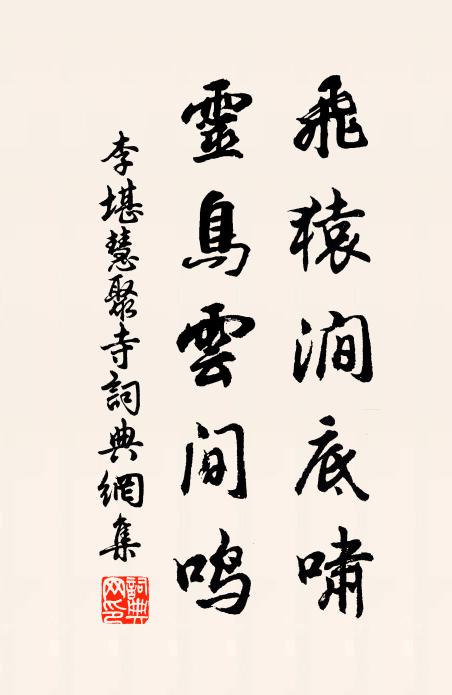 飛猿澗底嘯
靈鳥雲間鳴
李堪慧聚寺詞典網集
詞典
网印